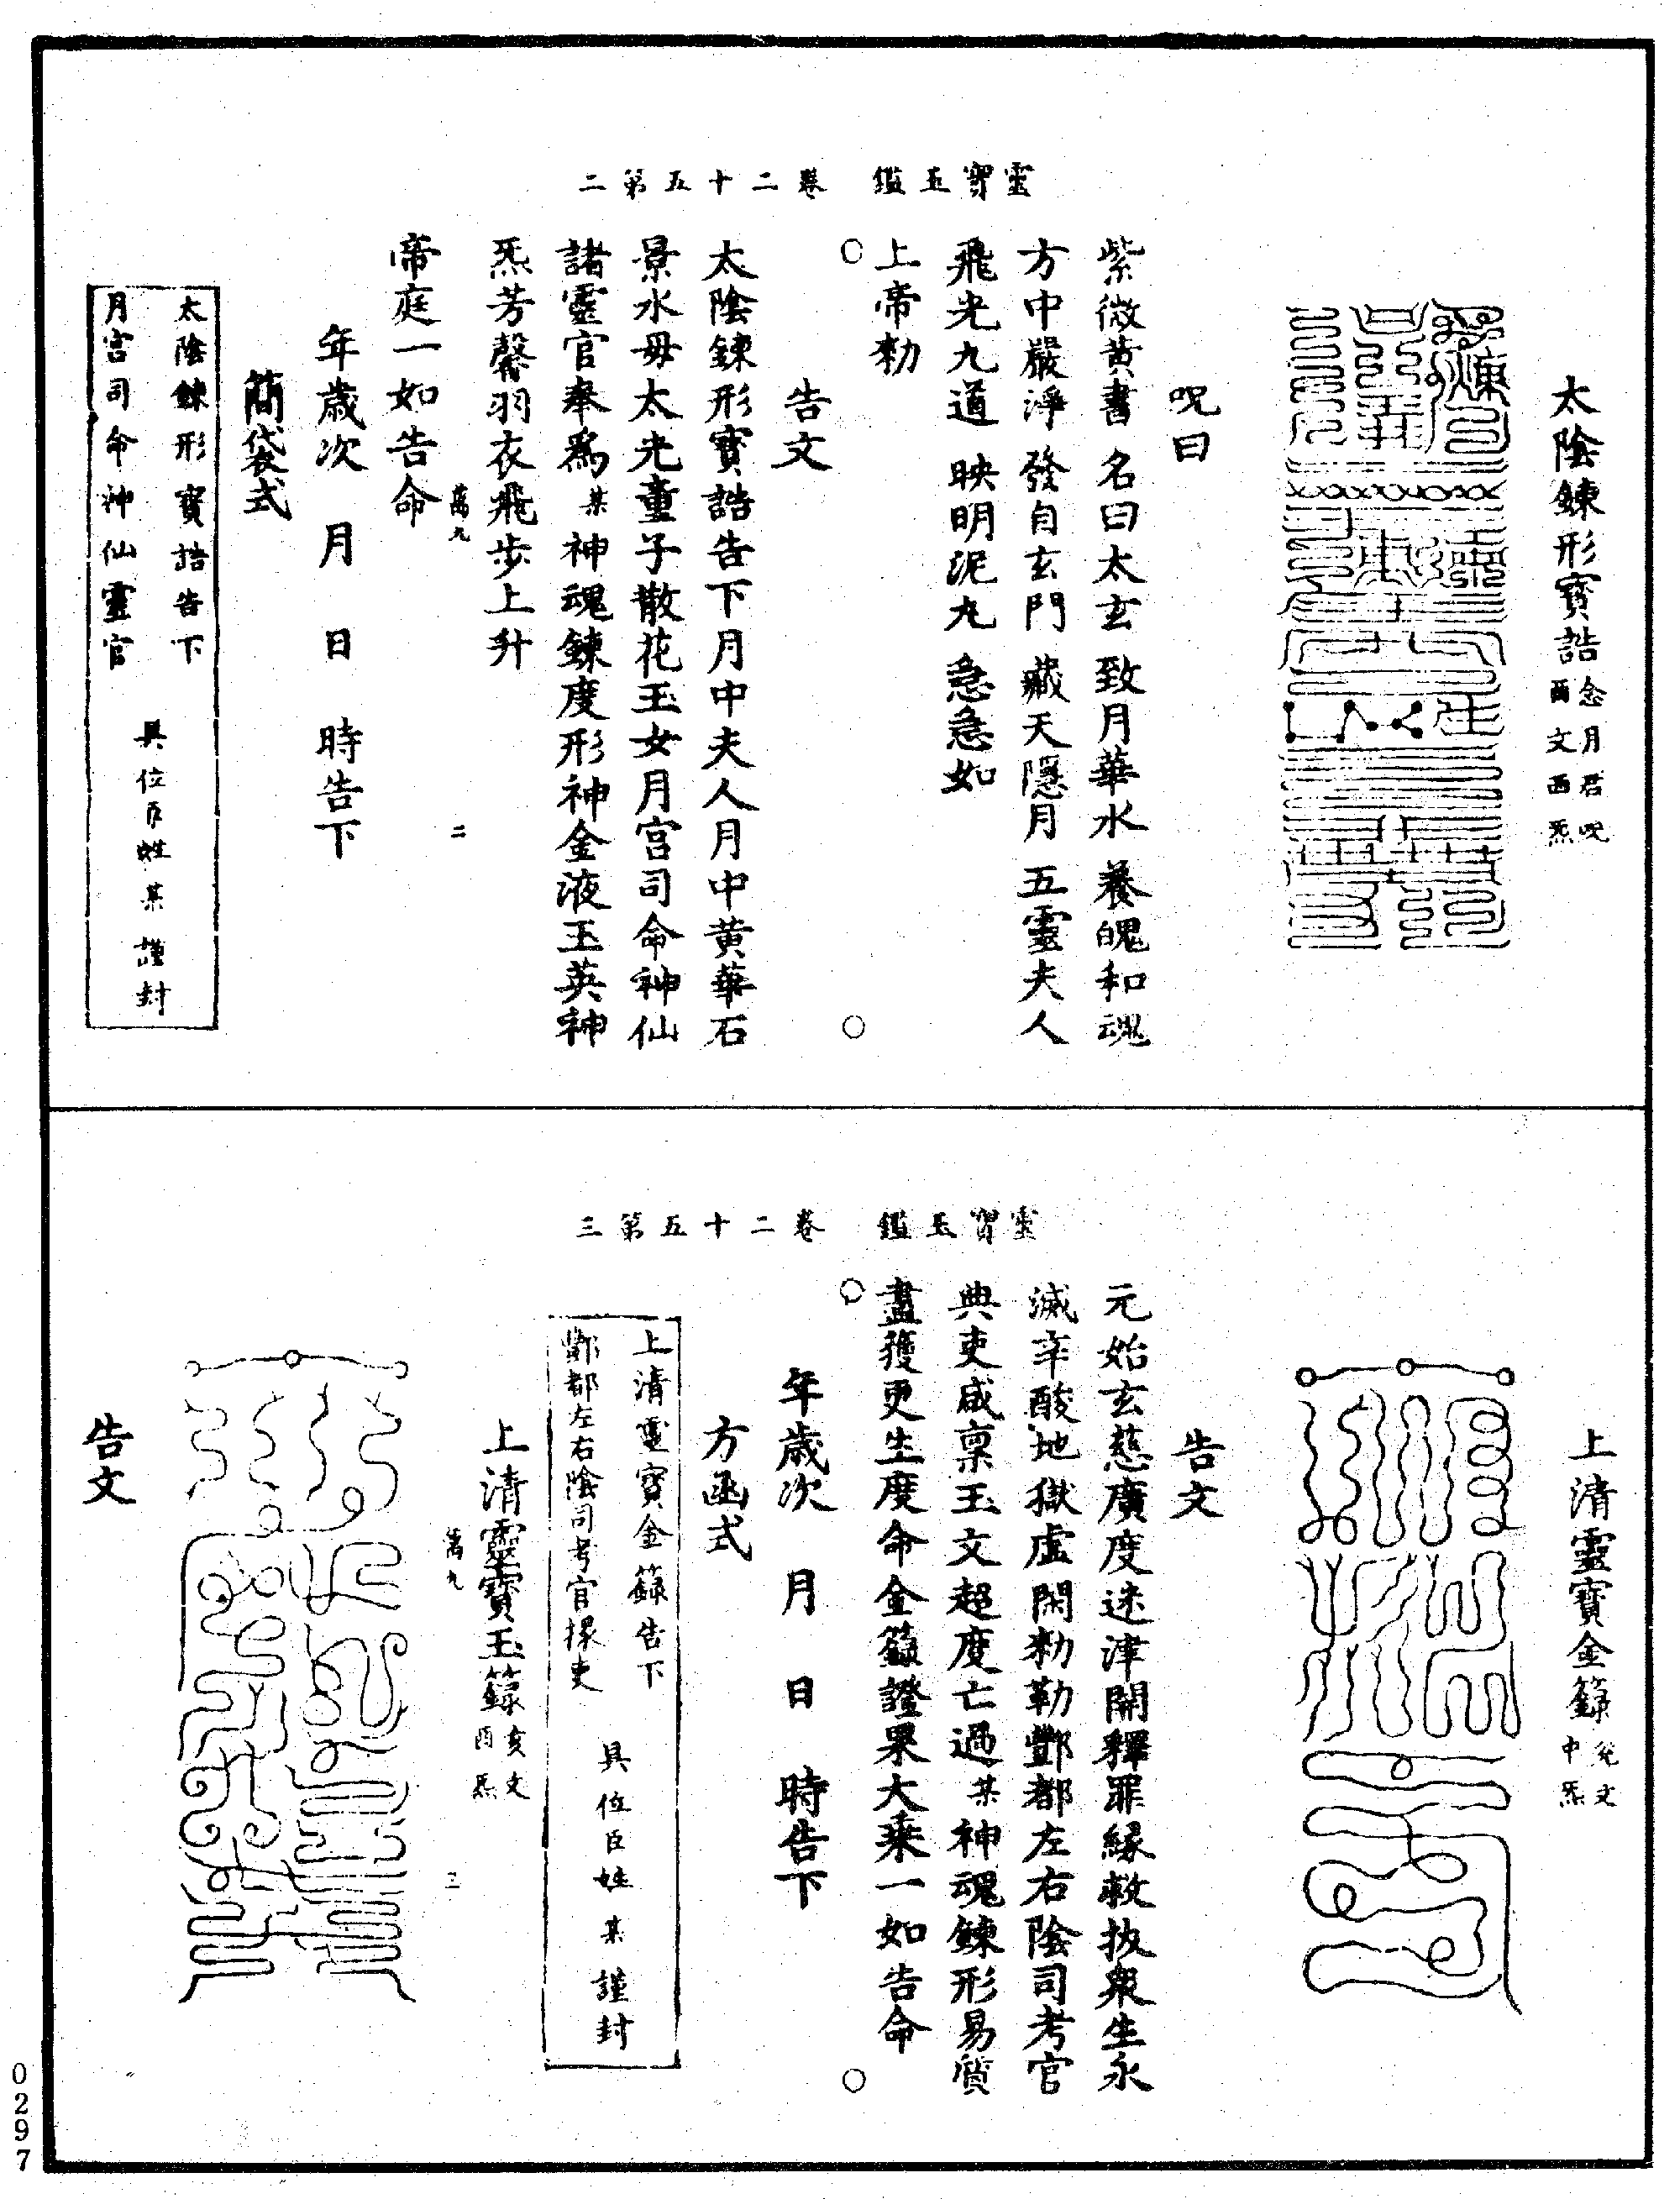 靈寶玉鑑　卷二十五第二
太陰鍊形寶誥 念月君呪 酉文西炁
呪曰
紫微黃書 名曰太玄 致月華水 養魄和魂
方中嚴淨 發自玄門 藏天隱月 五靈夫人
飛光九道 映明泥丸 急急如
上帝勑
告文
太陰鍊形寶誥告下月中夫人月中黃華石
景水母太光童子散花玉女月宮司命神仙
諸靈官奉爲某神魂鍊度形神金液玉英神
炁芳馨羽衣飛步上升
萬九 二
帝庭一如告命
年歲次　月　日　時告下
簡袋式
太陰鍊形寶誥告下
月宮司命神仙靈官
具位臣姓某謹封
靈寶玉鑑　卷二十五第三
上清靈寶金籙 兊文 中炁
告文
元始玄慈廣度迷津開釋罪緣救拔衆生永
滅辛酸地獄虛閑勑勒酆都左右陰司考官
典吏咸稟玉文超度亡過某神魂鍊形易質
盡獲更生度命金籙證果大乘一如告命
年歲次　月　日　時告下
方函式
上清靈寶金籙告下
酆都左右陰司考官掾吏
具位臣姓某謹封
上清靈寶玉籙 亥文 酉炁
萬九 三
告文
0297